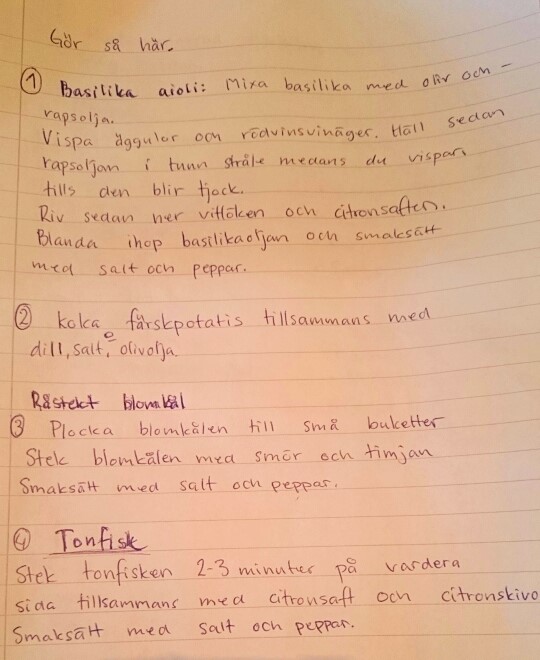 Gör så här.
① Basilika aioli: Mixa basilika med oliv och -
rapsolja.
Vispa äggulor och rödvinsvinäger. Häll sedan
rapsoljan i tunn stråle medans du vispar,
tills den blir tjock.
Riv sedan ner vitlöken och citronsaften.
Blanda ihop basilikaoljan och smaksätt
med salt och peppar.
② Koka färskpotatis tillsammans med
dill, salt, olivolja
Råstekt blomkål
③ Plocka blomkålen till små buketter
Stek blomkålen med smör och timjan
Smaksätt med salt och peppar.
④ Tonfisk
Stek tonfisken 2-3 minuter på vardera
sida tillsammans med citronsaft och citronskivo
Smaksätt med salt och peppar.